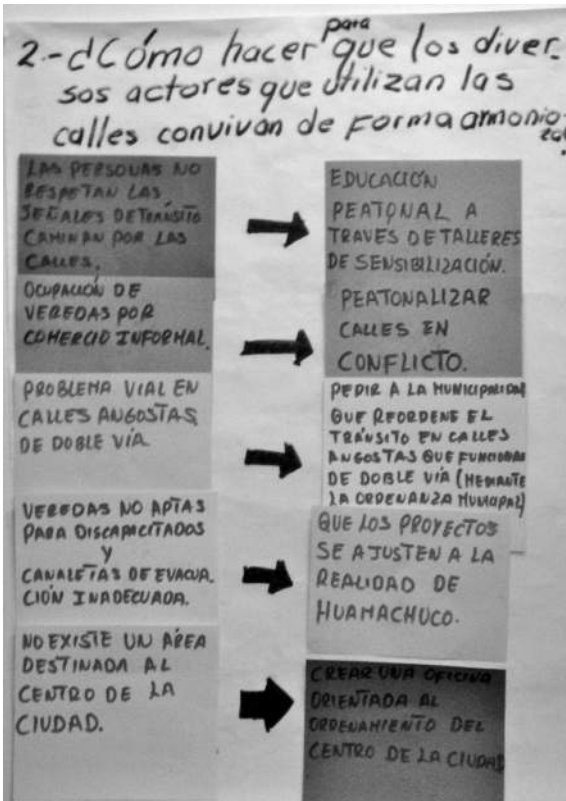 2.-¿Cómo hacer para que los diver-
sos actores que utilizan las
calles convivan de forma armonio-
za?
LAS PERSONAS NO
RESPETAN LAS
SEÑALES DE TRÁNSITO
CAMINAN POR LAS
CALLES.
EDUCACIÓN
PEATONAL A
TRAVES DE TALLERES
DE SENSIBILIZACIÓN.
OCUPACIÓN DE
VEREDAS POR
COMERCIO INFORMAL.
PEATONALIZAR
CALLES EN
CONFLICTO.
PROBLEMA VIAL EN
CALLES ANGOSTAS
DE DOBLE VÍA
PEDIR A LA MUNICIPALIDAD
QUE REORDENE EL
TRÁNSITO EN CALLES
ANGOSTAS QUE FUNCIONAN
DE DOBLE VÍA (MEDIANTE
LA ORDENANZA MUNICIPAL)
VEREDAS NO APTAS
PARA DISCAPACITADOS
Y
CANALETAS DE EVACUA-
CIÓN INADECUADA.
QUE LOS PROYECTOS
SE AJUSTEN A LA
REALIDAD DE
HUAMACHUCO.
NO EXISTE UN ÁREA
DESTINADA AL
CENTRO DE LA
CIUDAD.
CREAR UNA OFICINA
ORIENTADA AL
ORDENAMIENTO DEL
CENTRO DE LA CIUDAD